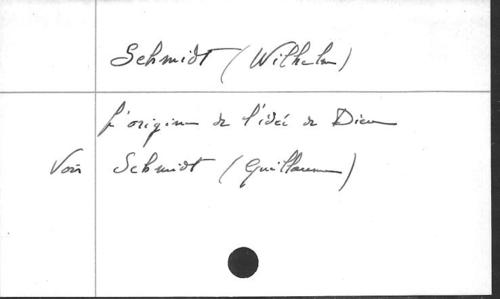 Schmidt (Wilhelm)
L'origine de l'idée de Dieu
Voir Schmidt (Guillaume)